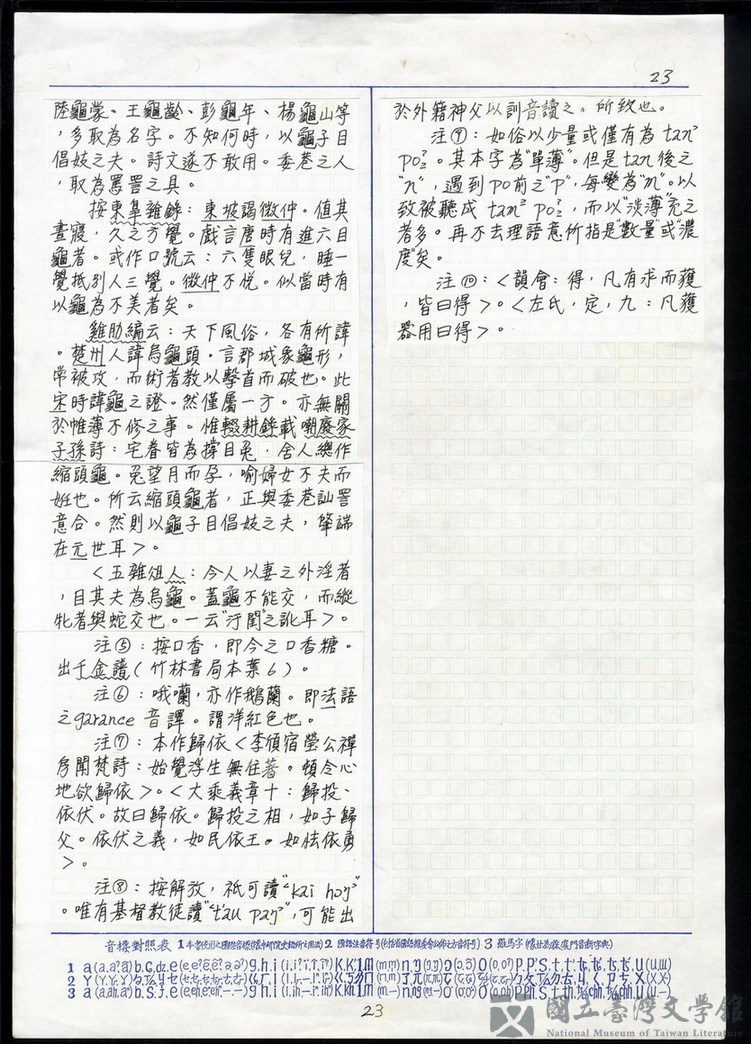 23
陸龜蒙、王龜齡、彭龜年、楊龜山等
，多取為名字。不知何時，以龜子目
倡妓之夫。詩文遂不敢用。委巷之人
，取為罵詈之具。
按東皐雜錄：東坡謁微仲。值其
晝寢，久之方覺。戲言唐時有進六目
龜者。或作口號云：六隻眼兒，睡一
覺抵別人三覺。微仲不悅。似當時有
以龜為不美者矣。
雞肋編云：天下風俗，各有所諱
。楚州人諱烏龜頭。言郡城象龜形，
常被攻，而術者教以擊首而破也。此
宋時諱龜之證。然僅屬一方。亦無關
於帷薄不修之事。惟輟耕錄載嘲廢家
子孫詩：宅眷皆為撐目兔，舍人總作
縮頭龜。兔望月而孕，喻婦女不夫而
妊也。所云縮頭龜者，正與委巷訕詈
意合。然則以龜子目倡妓之夫，肇端
在元世耳>。
<五雜俎人：今人以妻之外淫者
，目其夫為烏龜。蓋龜不能交，而縱
牝者與蛇交也。一云"汙閨"之訛耳>。
注⑤：按口香，即今之口香糖。
出千金譜(竹林書局本葉6)。
注⑥：哦囒，亦作鵝蘭。即法語
之garance 音譯。謂洋紅色也。
注⑦：本作歸依<李頎宿瑩公禪
房聞梵詩：始覺浮生無住著。頓令心
地欲歸依>。<大乘義章十：歸投、
依伏。故曰歸依。歸投之相，如子歸
父。依伏之義，如民依王。如怯依勇
>。
注⑧：按解放，祇可讀"kai hoŋ"
。唯有基督教徒讀"t'au paŋ"，可能出
於外籍神父以訓音讀之。所致也。
注⑨：如俗以少量或僅有為 tan
po。其本字為"單薄"。但是 tan 後之
"n"，遇到po前之"p"，每變為"m"。以
致被聽成 tam po，而以"淡薄"充之
者多。再不去理語意所指是"數量"或"濃
度"矣。
注⑩：<韻會：得，凡有求而獲
，皆曰得>。<左氏，定，九：凡獲
器用曰得>。
音標對照表
23
國立臺灣文學館
National Museum of Taiwan Literature